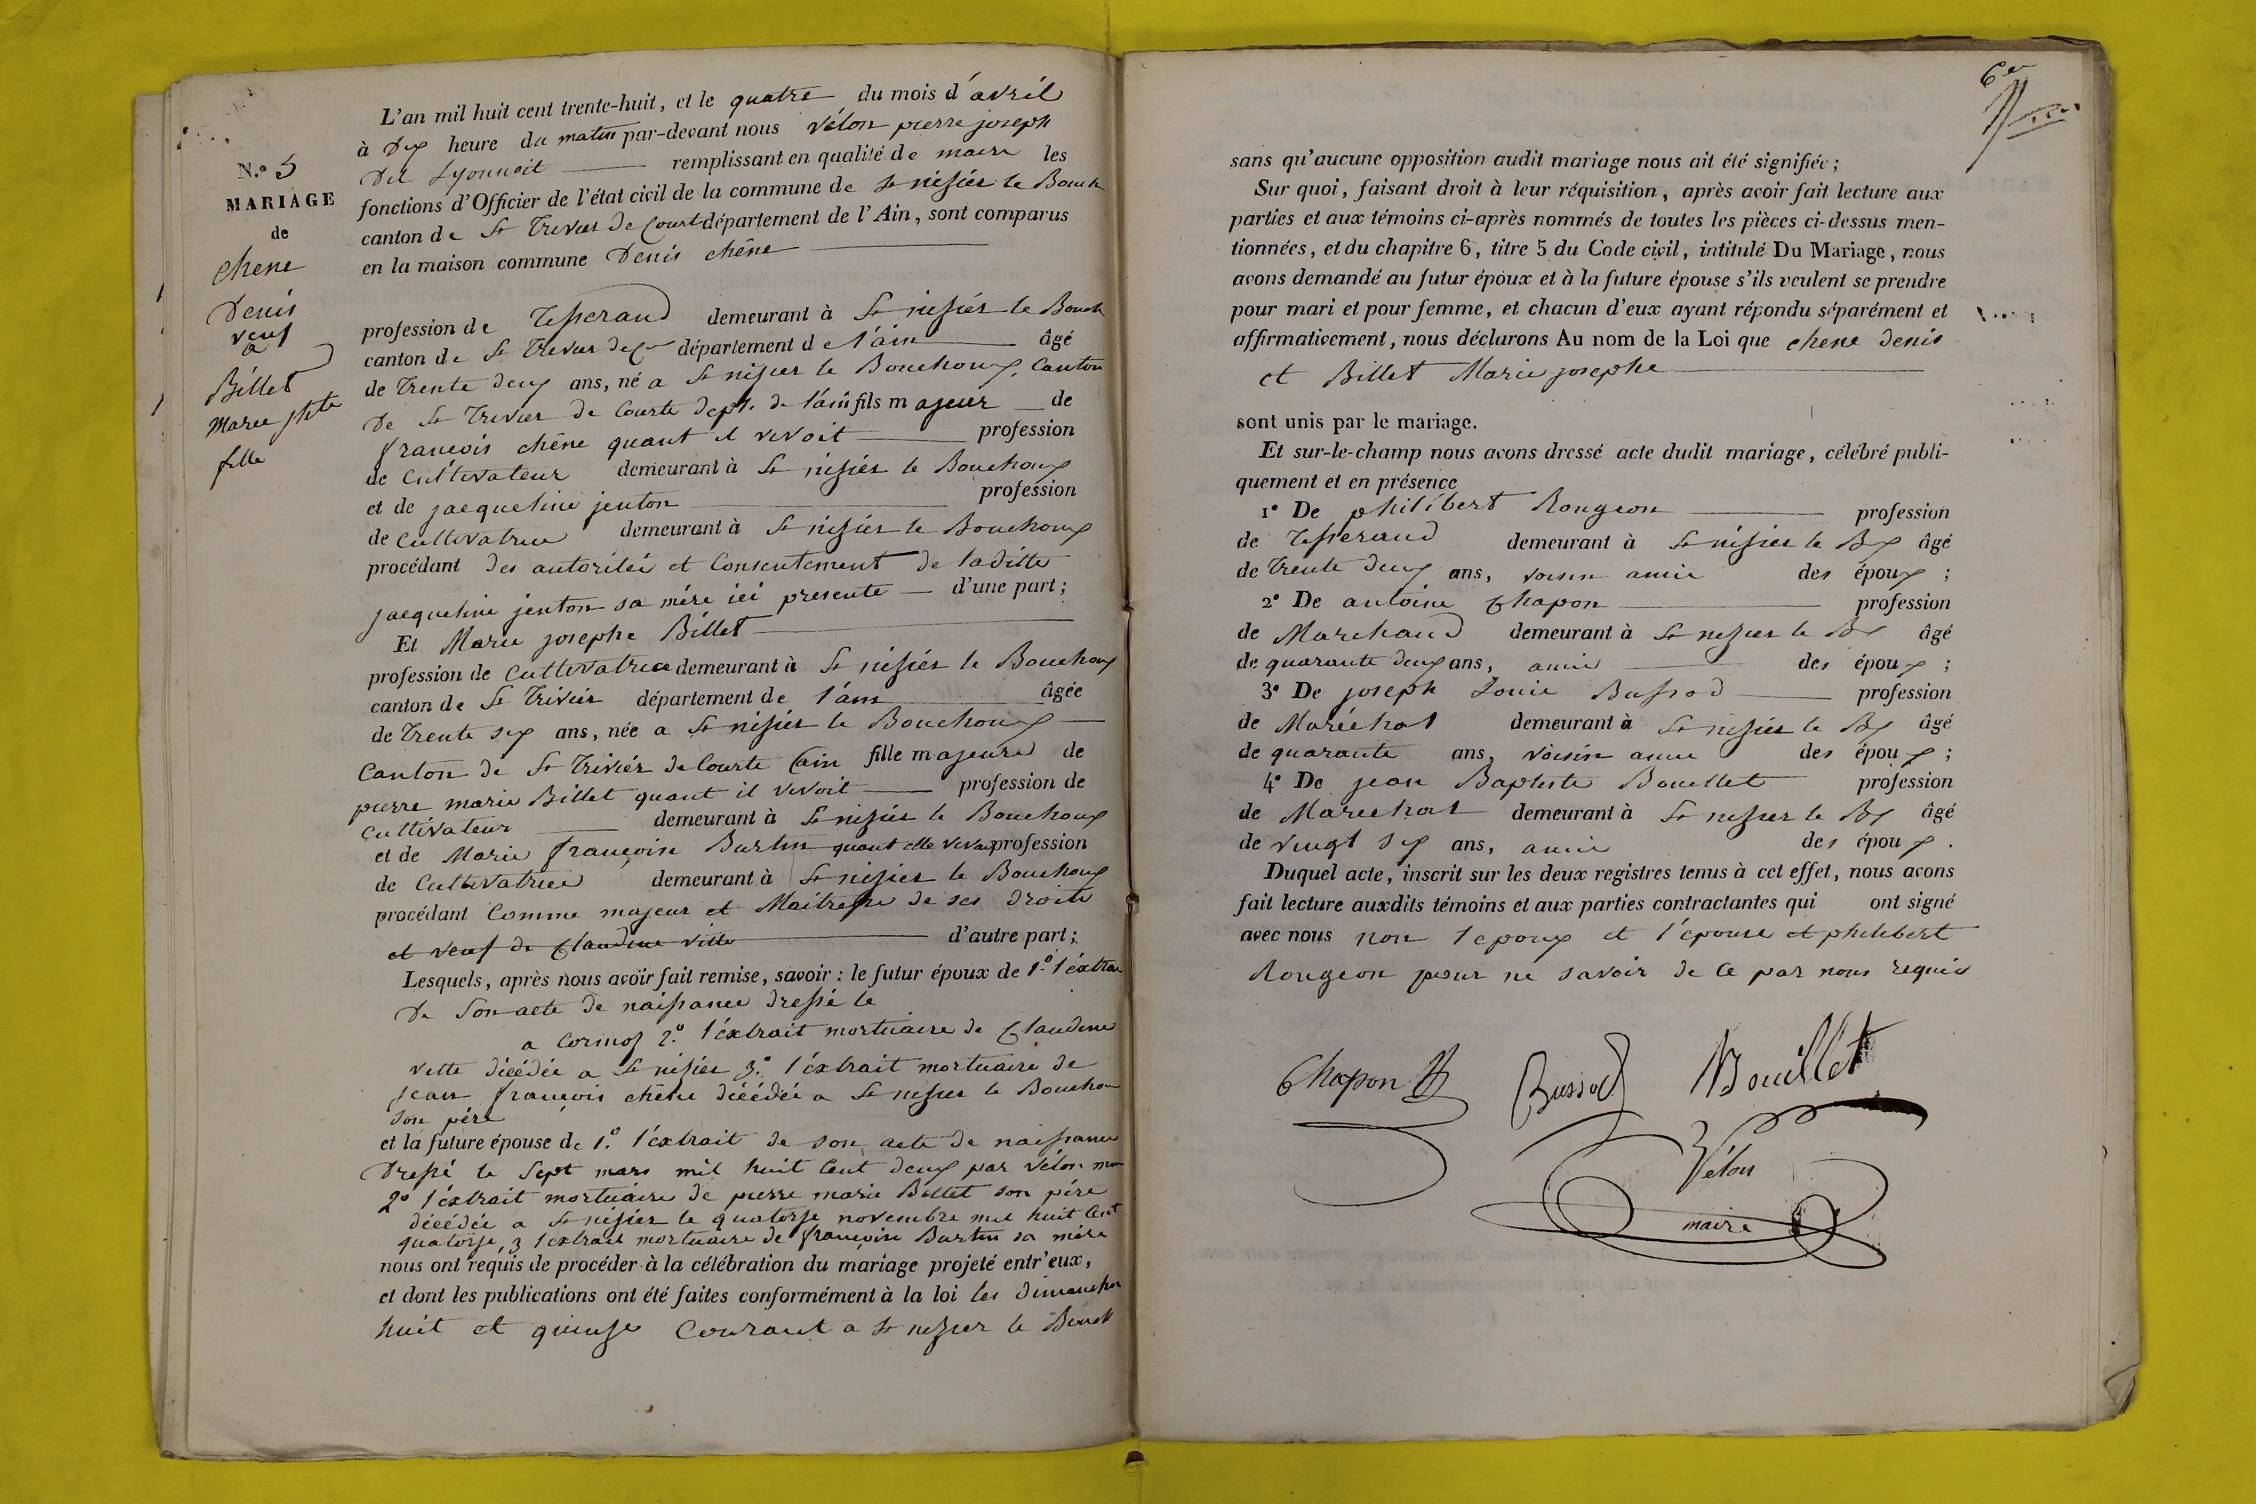 N.º 5
MARIAGE
de
chene
Denis
veuf
a
Billet
Marie jphte
fille
L'an mil huit cent trente-huit, et le quatre du mois d'avril
à Dix heure du matin par-devant nous Vélon pierre joseph
Del Lyonnoit remplissant en qualité de maire les
fonctions d'Officier de l'état civil de la commune de St nisiér le Bouch
canton de St Trivier de Court département de l'Ain, sont comparus
en la maison commune Denis chêne
profession de Tisserand demeurant à St nisiér le Bouch
canton de St Trivier de Cte département de l'ain âgé
de Trente deux ans, né a St nisier le Bouchoux, Canton
De St Trivier de Courte dept. de l'ain fils majeur de
françois chêne quant il vivoit profession
de Cultivateur demeurant à St nisiér le Bouchoux
et de jacqueline jenton profession
de Cultivatrice demeurant à St nisiér le Bouchoux
procédant des autorités et Consentement de laditte
jacqueline jenton sa mére ici presente d'une part;
Et Marie josephe Billet
profession de Cultivatrice demeurant à St nisiér le Bouchoux
canton de St Triviér département de l'ain âgée
de Trente six ans, née a St nisiér le Bouchoux
Canton de St Triviér de Courte (ain fille majeure de
pierre marie Billet quant il vivoit profession de
Cultivateur demeurant à St nisiér le Bouchoux
et de Marie françoise Burtin quant elle vivoit profession
de Cultivatrice demeurant à St nisiér le Bouchoux
procédant Comme majeur et Maitresse de ses droits
et veuf de Claudine vitte d'autre part;
Lesquels, après nous avoir fait remise, savoir : le futur époux de 1.º l'éxtrai
De Son acte de naissance dressé le
a Cormoz 2.º l'éxtrait mortuaire de Claudine
vette décédée a St nisiér 3.º l'éxtrait mortuaire de
jean françois chêne décédée a St nisier le Bouchou
son pére
et la future épouse de 1.º l'éxtrait de son acte de naissance
Dressé le Sept mars mil huit Cent deux par Vélon mai
2º l'éxtrait mortuaire de pierre marie Billet son pére
décédée a St nisiér le quatorse novembre mil huit Cent
quatorse, 3 l'extrait mortuaire de françoise Burtin sa mére
nous ont requis de procéder à la célébration du mariage projeté entr'eux,
et dont les publications ont été faites conformément à la loi les dimanches
huit et quinse Courant a St nisier le Bouch
6er
sans qu'aucune opposition audit mariage nous ait été signifiée;
Sur quoi, faisant droit à leur réquisition, après avoir fait lecture aux
parties et aux témoins ci-après nommés de toutes les pièces ci-dessus men-
tionnées, et du chapitre 6, titre 5 du Code civil, intitulé Du Mariage, nous
avons demandé au futur époux et à la future épouse s'ils veulent se prendre
pour mari et pour femme, et chacun d'eux ayant répondu séparément et
affirmativement, nous déclarons Au nom de la Loi que chene denis
et Billet Marie josephe
sont unis par le mariage.
Et sur-le-champ nous avons dressé acte dudit mariage, célébré publi-
quement et en présence
1º De philibert Rongeon profession
de Tisserand demeurant à St nisier le Bx âgé
de Trente deux ans, voisin amie des époux;
2º De antoine Chapon profession
de Marchand demeurant à St nisier le Bx âgé
de quarante deux ans, amie des époux;
3º De joseph Louie Bussod profession
de Maréchal demeurant à St nisier le Bx âgé
de quarante ans, voisin amie des époux;
4º De jean Baptiste Bouillet profession
de Marechal demeurant à St nisier le Bx âgé
de vingt six ans, amie des époux.
Duquel acte, inscrit sur les deux registres tenus à cet effet, nous avons
fait lecture auxdits témoins et aux parties contractantes qui ont signé
avec nous non l'epoux et l'épouse et philibert
Rongeon pour ne savoir de ce par nous requis
Chapon Bussod Bouillet
Vélon
maire